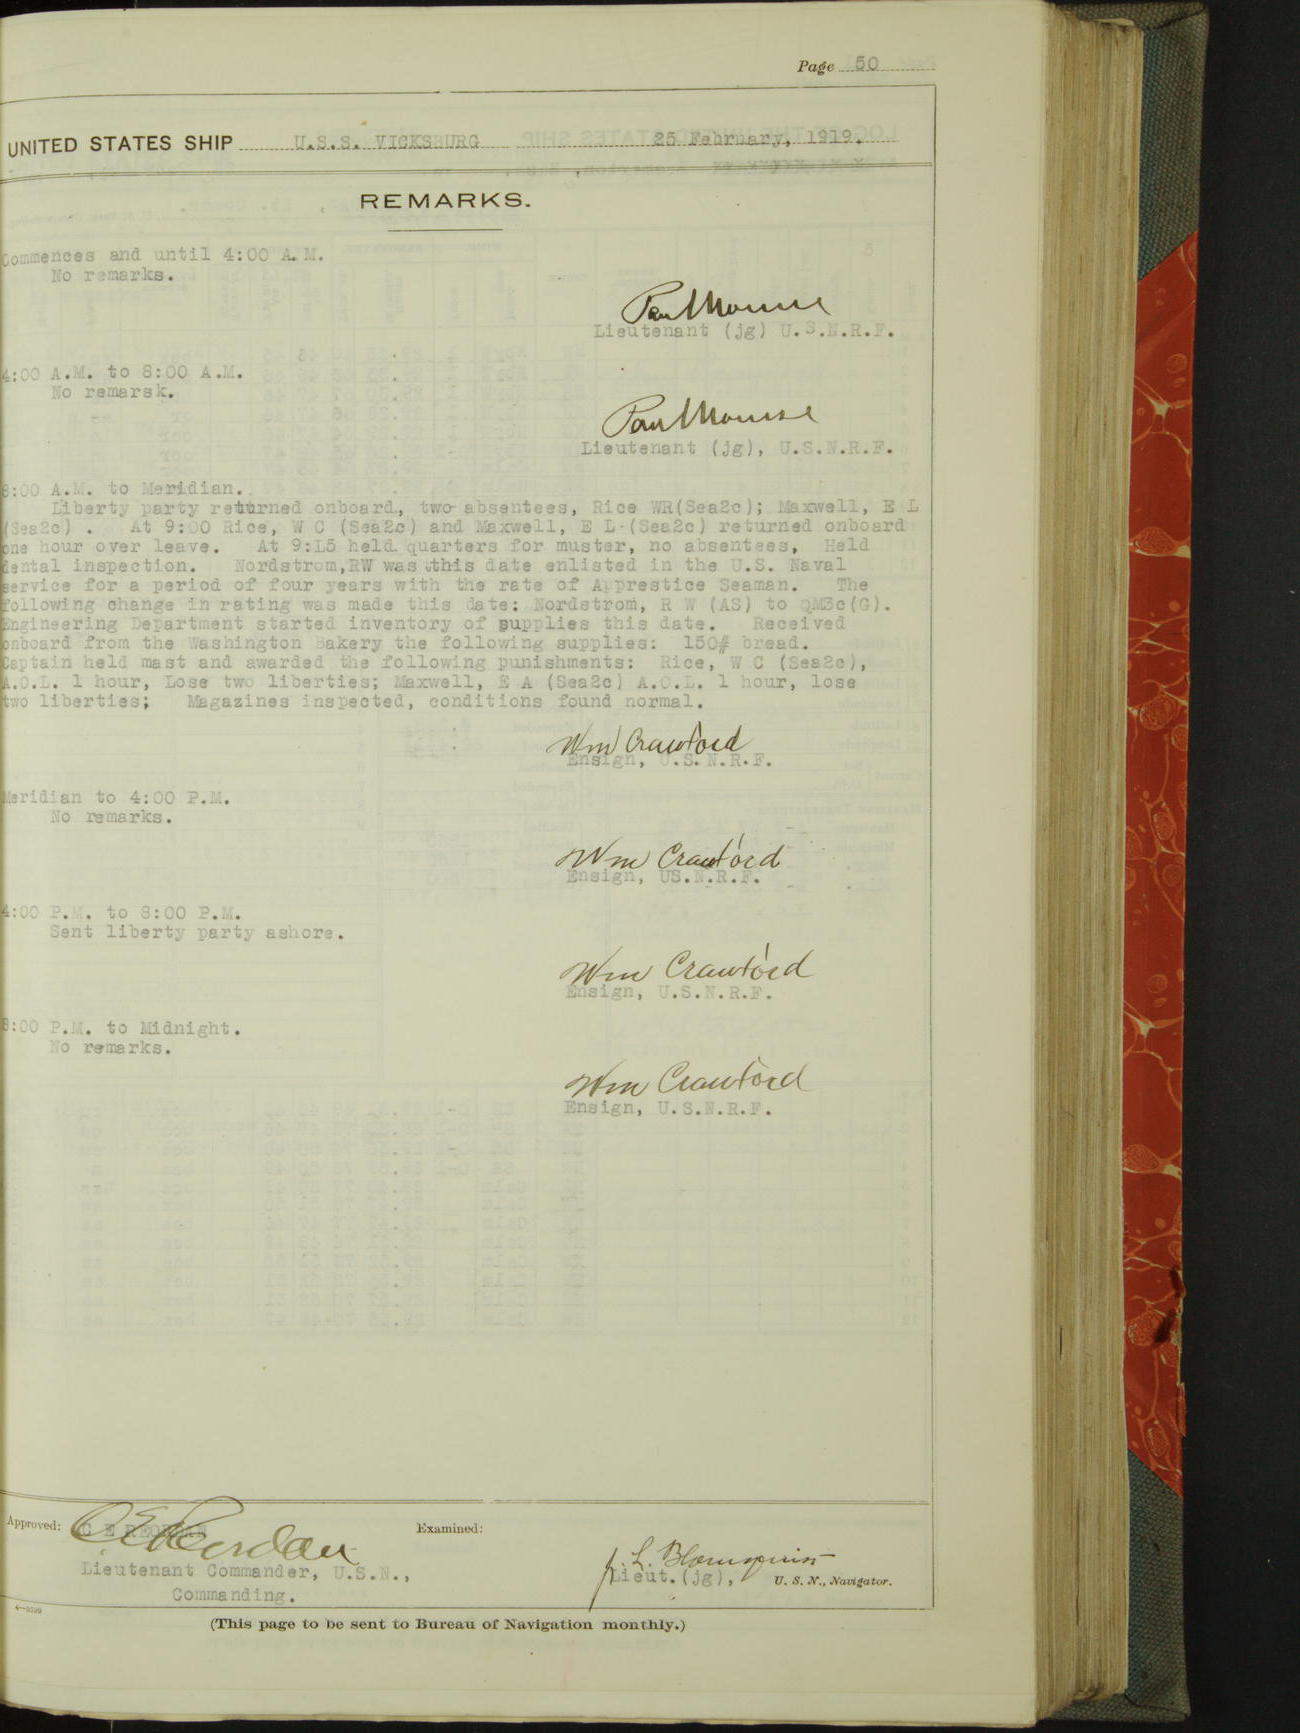 Page 50
UNITED STATES SHIP U.S.S. VICKSBURG 25 February, 1919.
REMARKS.
Commences and until 4:00 A.M.
No remarks.
Lieutenant (jg) U.S.N.R.F.
4:00 A.M. to 8:00 A.M.
No remarsk.
Lieutenant (jg), U.S.N.R.F.
8:00 A.M. to Meridian.
Liberty party returned onboard, two absentees, Rice WR(Sea2c); Maxwell, E L
(Sea2c) . At 9:00 Rice, W C (Sea2c) and Maxwell, E L (Sea2c) returned onboard
one hour over leave. At 9:L5 held quarters for muster, no absentees, Held
dental inspection. Nordstrom,RW was this date enlisted in the U.S. Naval
service for a period of four years with the rate of Apprestice Seaman. The
following change in rating was made this date: Nordstrom, R W (AS) to QM3c(G).
Engineering Department started inventory of supplies this date. Received
onboard from the Washington Bakery the following supplies: 150# bread.
Captain held mast and awarded the following punishments: Rice, W C (Sea2c),
A.O.L. 1 hour, Lose two liberties; Maxwell, E A (Sea2c) A.O.L. 1 hour, lose
two liberties; Magazines inspected, conditions found normal.
Wm Crawford
Ensign, U.S.N.R.F.
Meridian to 4:00 P.M.
No remarks.
Wm Crawford
Ensign, US.N.R.F.
4:00 P.M. to 8:00 P.M.
Sent liberty party ashore.
Wm Crawford
Ensign, U.S.N.R.F.
8:00 P.M. to Midnight.
No remarks.
Wm Crawford
Ensign, U.S.N.R.F.
Approved: C E REORDAN Examined:
C E Reordan
J. L. Blomquist
Lieutenant Commander, U.S.N., Lieut.(jg), U. S. N., Navigator.
Commanding.
(This page to be sent to Bureau of Navigation monthly.)